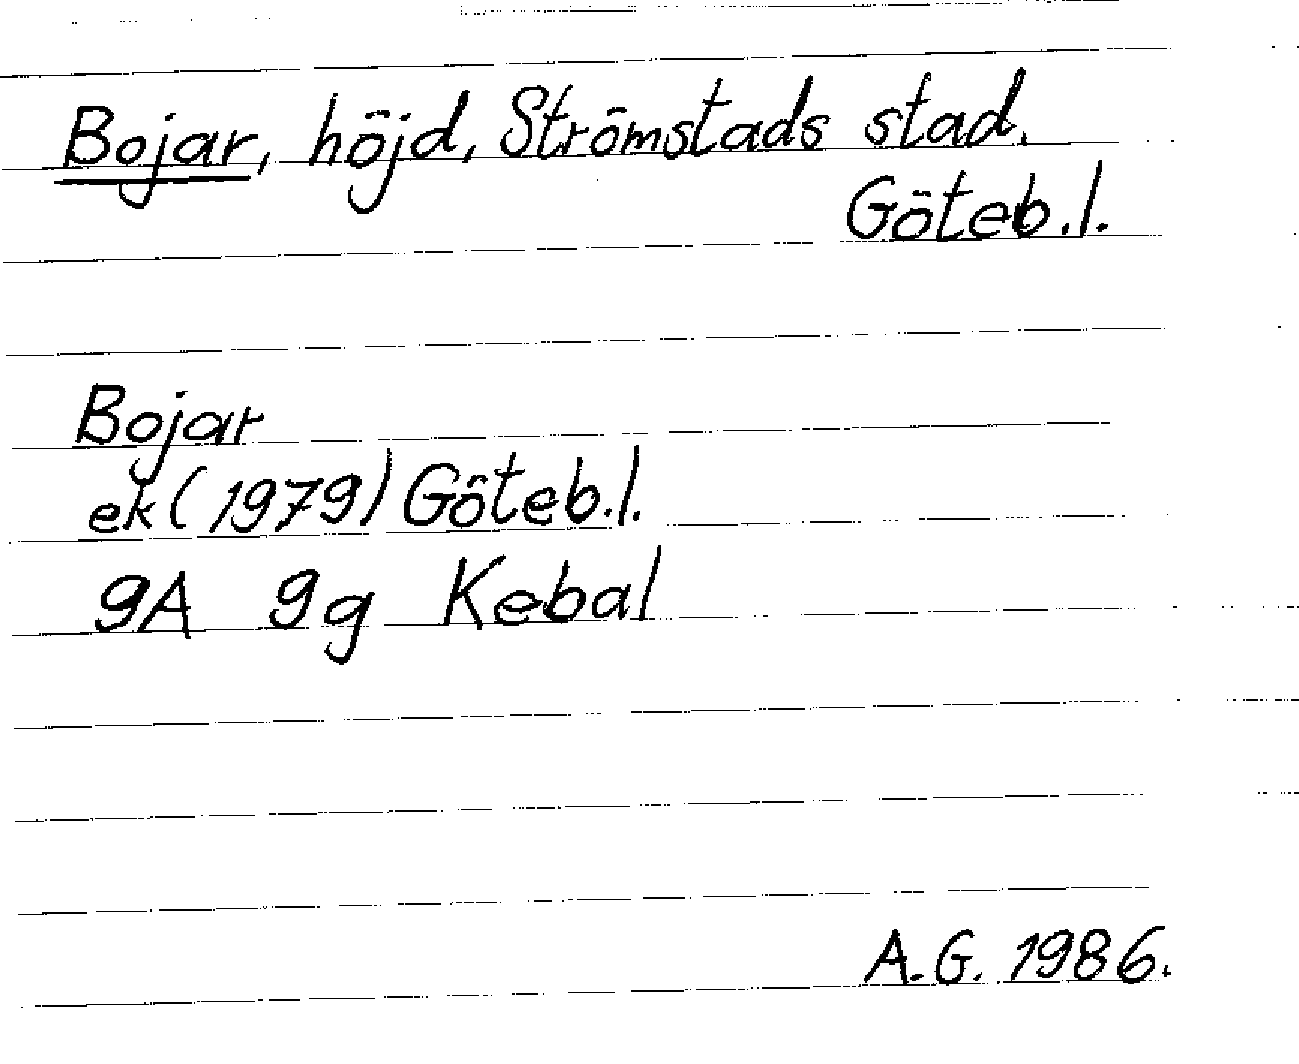 Bojar, höjd, Strömstads stad.
Göteb.l.
Bojar
ek (1979) Göteb.l.
9A 9g Kebal
A.G. 1986.